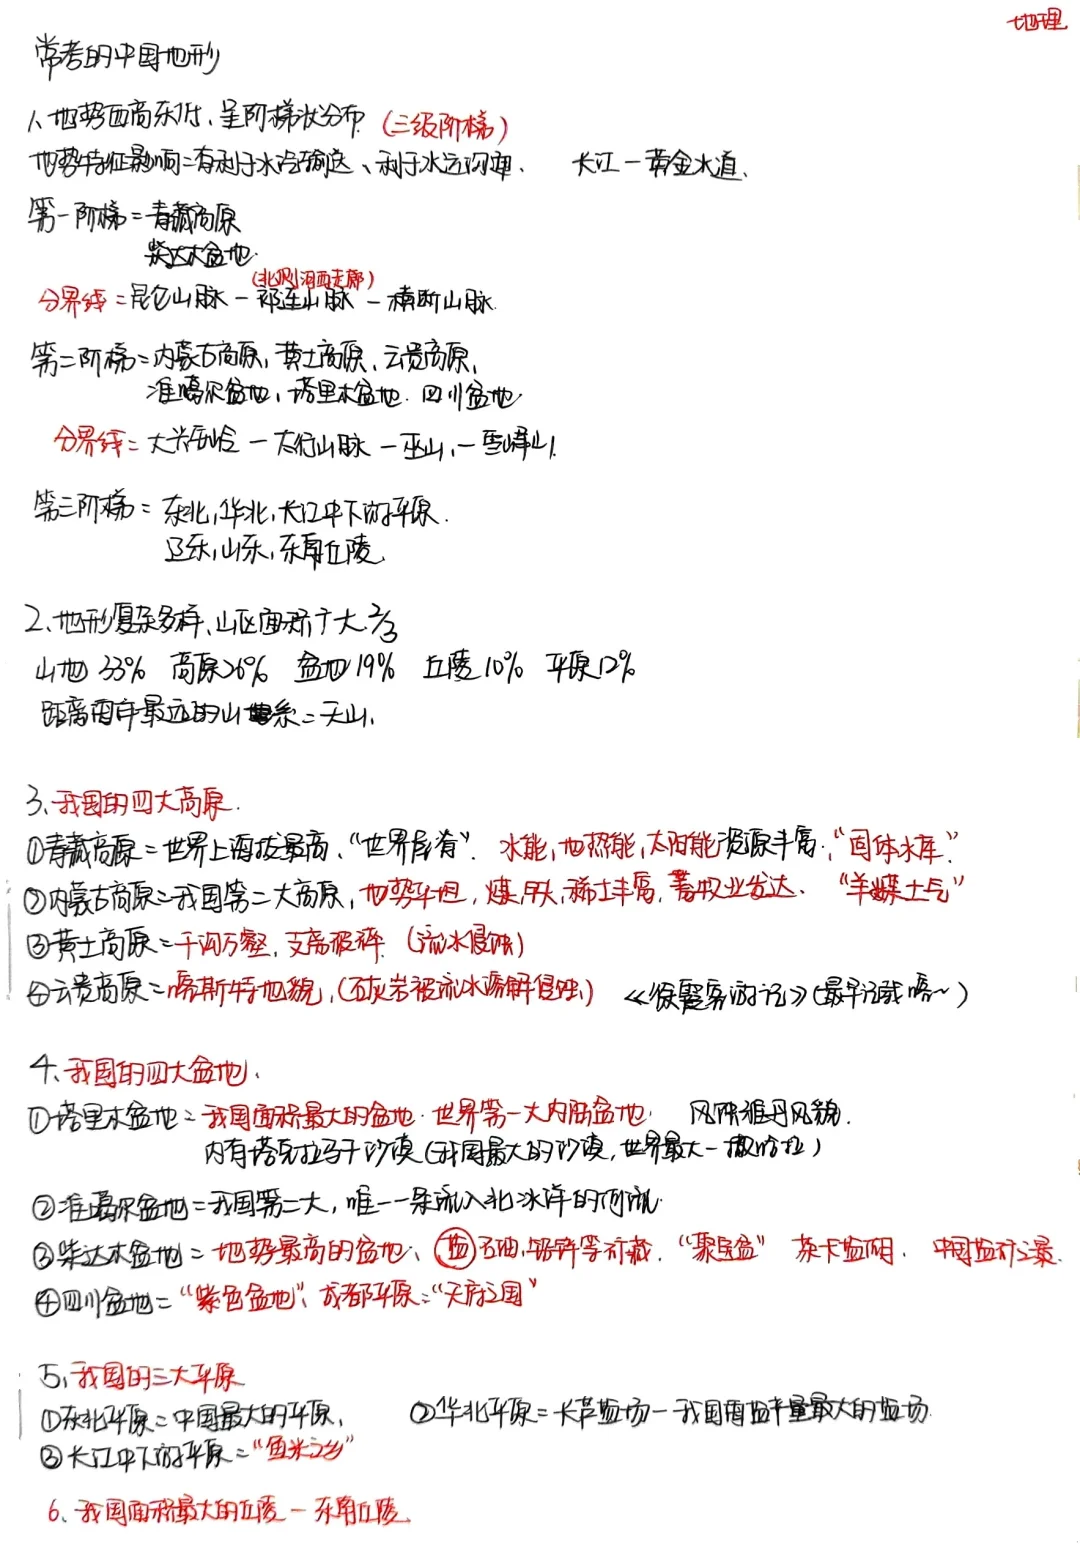 地理
常考的中国地形
1、地势西高东低、呈阶梯状分布 (三级阶梯)
地势特征影响=有利于水汽输送、利于水运沟通. 长江-黄金水道.
第一阶梯=青藏高原
柴达木盆地.
(北侧河西走廊)
分界线=昆仑山脉-祁连山脉-横断山脉.
第二阶梯=内蒙古高原,黄土高原、云贵高原,
准噶尔盆地,塔里木盆地.四川盆地
分界线=大兴安岭-太行山脉-巫山,-雪峰山.
第三阶梯=东北,华北,长江中下游平原.
辽东,山东,东南丘陵.
2、地形复杂多样、山区面积广大.2/3
山地33% 高原26% 盆地19% 丘陵10% 平原12%
距离海洋最远的山系=天山.
3、我国的四大高原.
①青藏高原=世界上海拔最高、"世界屋脊". 水能,地热能,太阳能资源丰富."固体水库".
②内蒙古高原=我国第二大高原,地势平坦,煤,铁,稀土丰富,畜牧业发达. "羊煤土气"
③黄土高原=千沟万壑,支离破碎.(流水侵蚀)
④云贵高原=喀斯特地貌,(石灰岩被流水溶解侵蚀.) 《徐霞客游记》(最早记载喀~)
4、我国的四大盆地.
①塔里木盆地=我国面积最大的盆地.世界第一大内陆盆地. 风雅丹风貌.
内有塔克拉玛干沙漠(我国最大的沙漠,世界最大-撒哈拉)
②准噶尔盆地=我国第二大,唯一一条流入北冰洋的河流
③柴达木盆地=地势最高的盆地、盐石油,铅锌等矿藏."聚宝盆" 茶卡盐湖. 中国盐矿之最.
④四川盆地="紫色盆地"、成都平原="天府之国"
5、我国的三大平原
①东北平原=中国最大的平原, ②华北平原=长芦盐场-我国海盐产量最大的盐场.
③长江中下游平原="鱼米之乡"
6、我国面积最大的丘陵-东南丘陵.